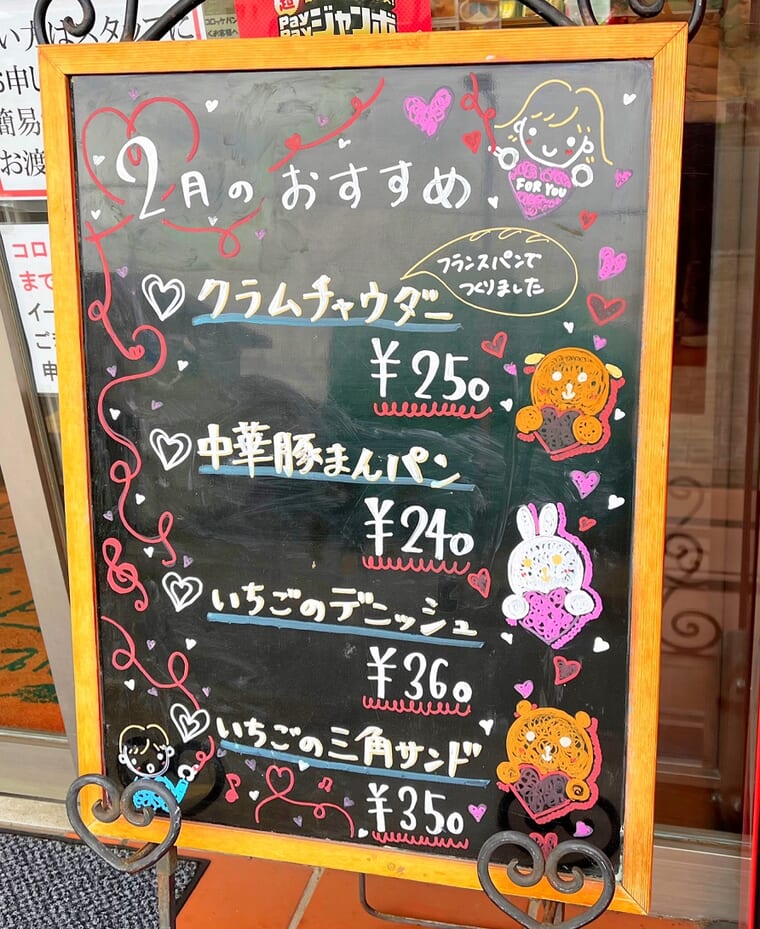 コロッケパン
PayPayジャンボ
簡易
お渡
コロ
まで
2月のおすすめ
FOR YOU
フランスパンで
つくりました
クラムチャウダー
¥250
中華豚まんパン
¥240
いちごのデニッシュ
¥360
いちごの三角サンド
¥350